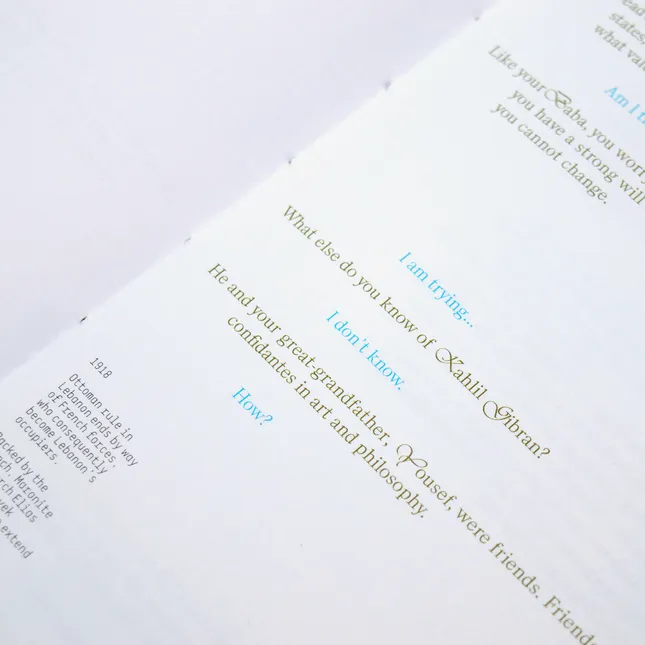 states,
what
Am I
Like your Baba, you worry
you have a strong will
you cannot change.
I am trying...
What else do you know of Kahlil Gibran?
I don't know.
He and your great-grandfather, Yousef, were friends.
confidantes in art and philosophy.
How?
1918
Ottoman rule in
Lebanon ends by way
of French forces,
who consequently
become Lebanon's
occupiers.
Backed by the
Maronite
Elias
extend